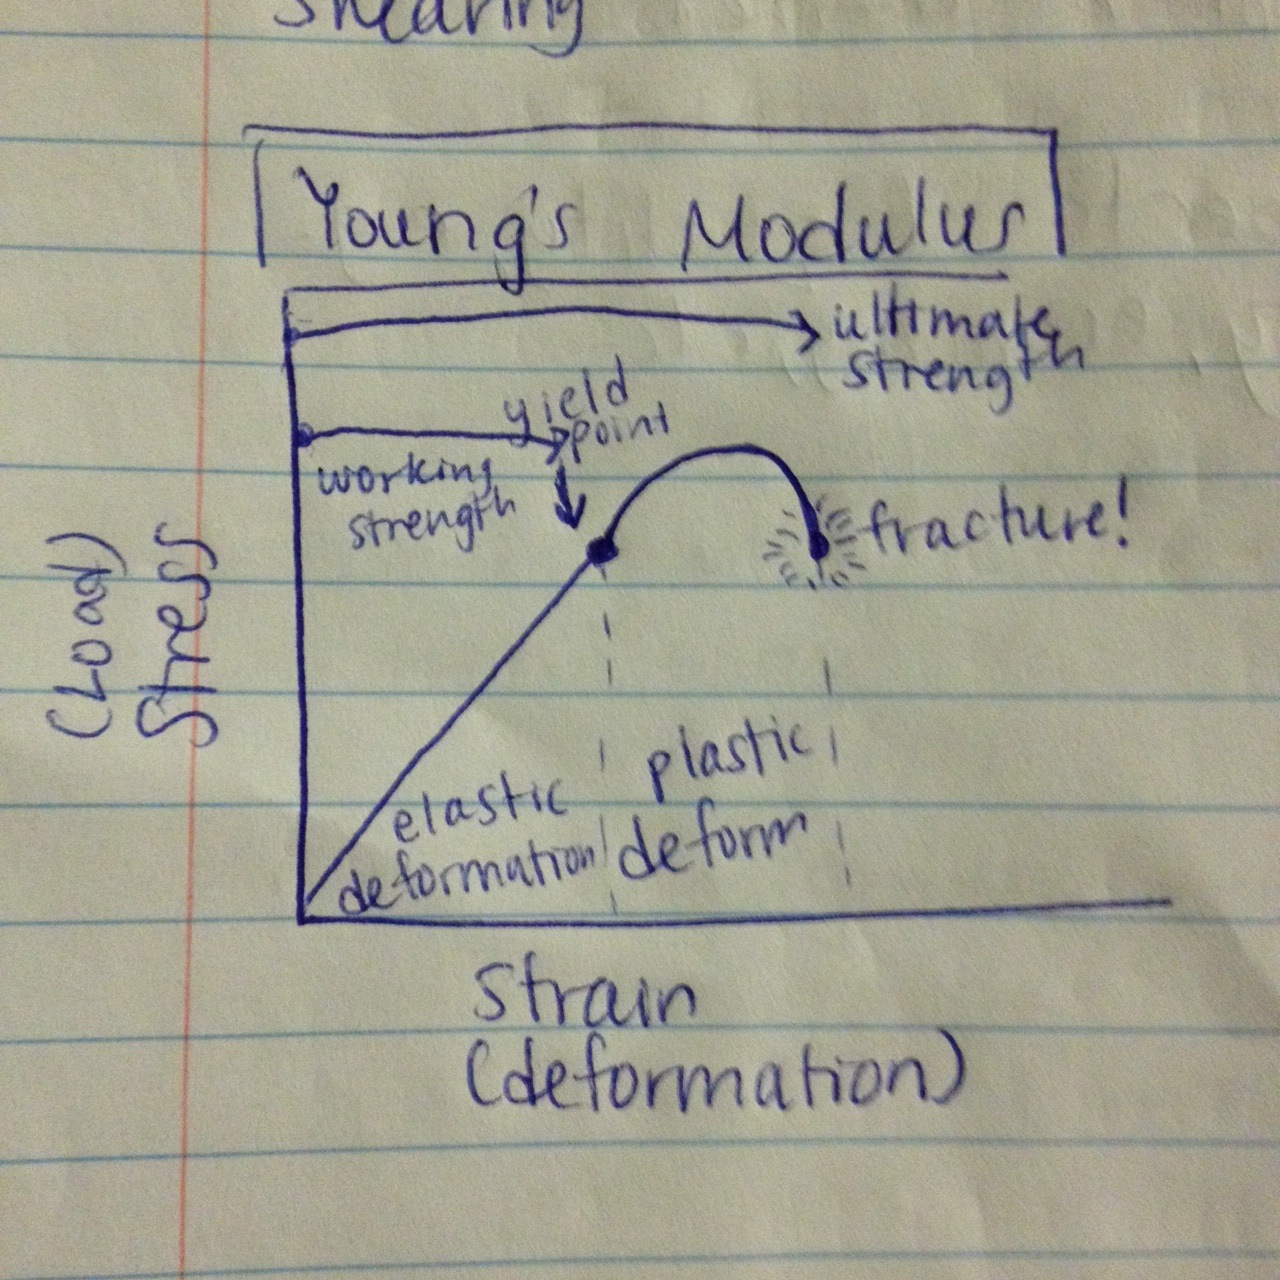 Shearing
Young's Modulus
ultimate
strength
yield
point
working
strength
fracture!
(Load)
Stress
elastic
deformation
plastic
deform
Strain
(deformation)